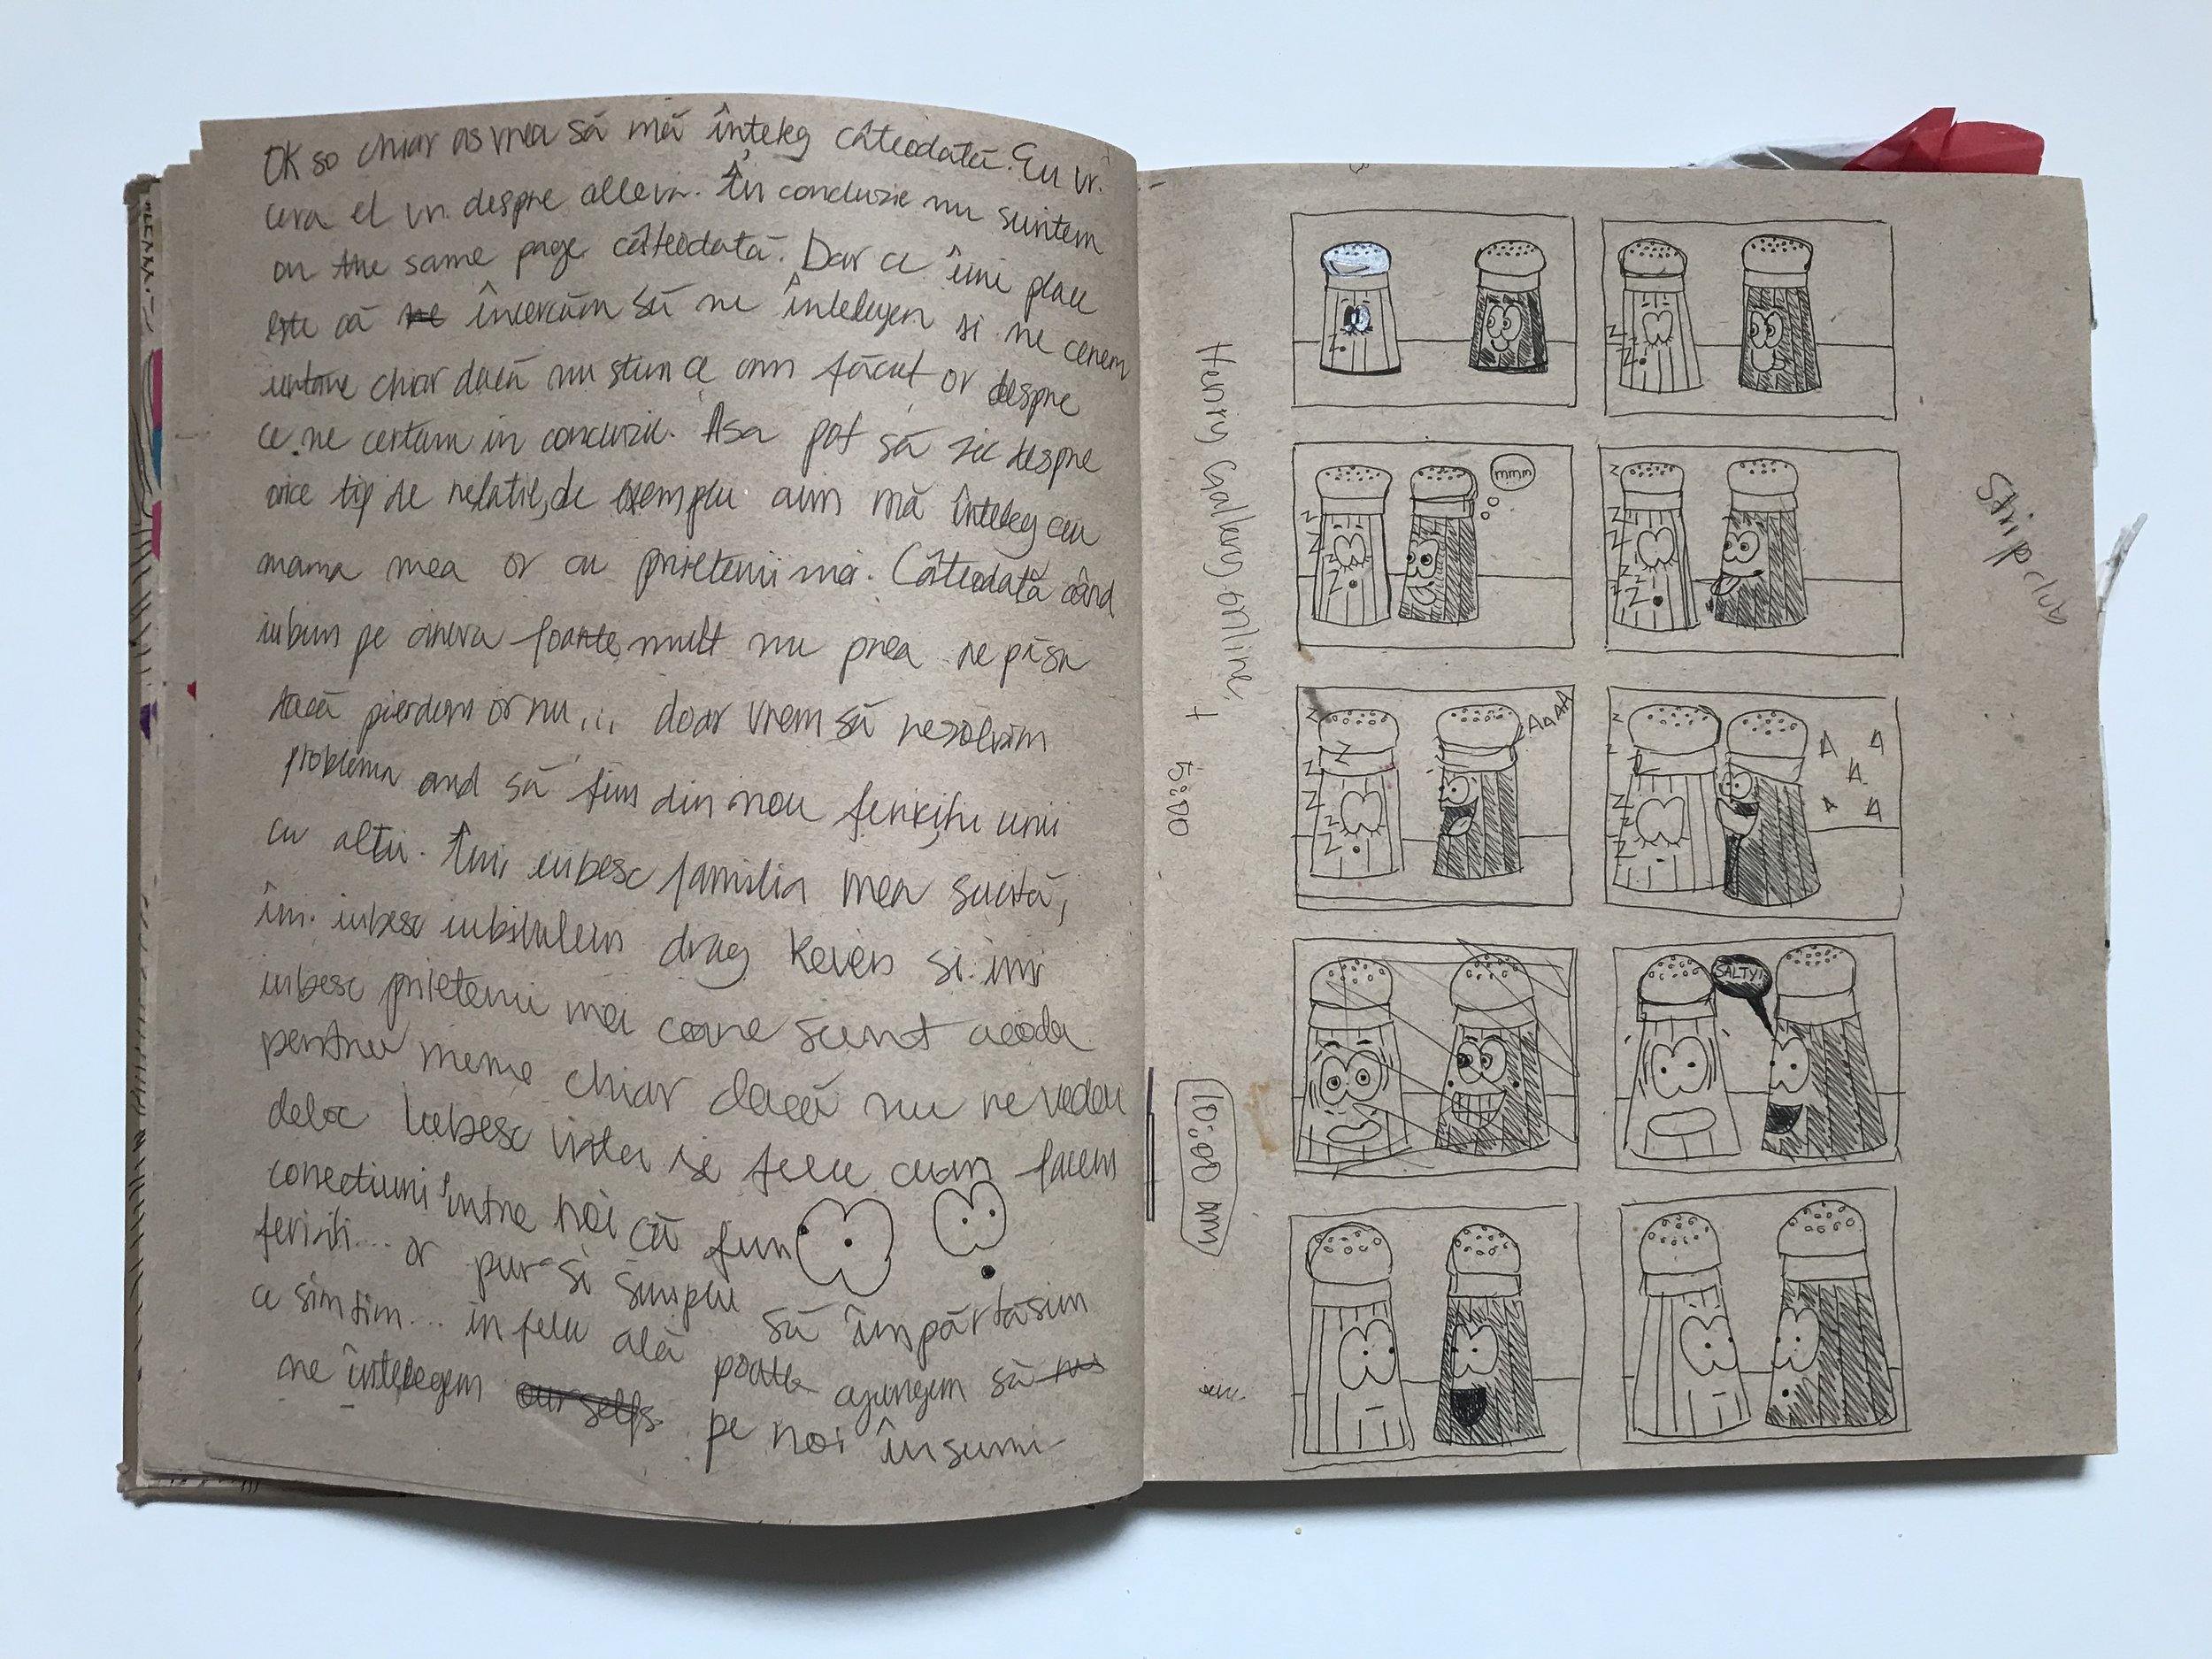 OK so chiar as vrea să mă înțeleg câteodată. Eu vr.
ceva el vr. despre alteva. În concluzie nu suntem
on the same page câteodată. Dar ce îmi place
este că ne încercăm să ne întelegem si ne cerem
iertare chiar dacă nu stim ce am făcut or despre
ce ne certam in concluzie. Asa pot să zic despre
orice tip de relatie, de exemplu cum mă înteleg cu
mama mea or cu prietenii mei. Câteodată când
iubim pe cineva foarte mult nu prea ne păsa
dacă pierdem or nu... doar vrem să rezolvim
problema and să fim din nou fericiți unii
cu altii. Îmi iubesc familia mea sucită,
îmi iubesc iubitulem drag Keven si imi
iubesc prietenii mei care sunt acoda
pentru meme chiar dacă nu ne vedem
deloc Iubesc viata si felu cum facem
conectiuni intre noi că fim
feriiti... or pur si simplu să împărtăsim
ce simtim... in felu ală poate ajungem să
ne întelegem our selfs pe noi însumi
Henry Gallery online, +
5:00
10:00 am
Strip club
z
z
z
z
z
z
mmm
z
z
z
z
z
z
z
z
z
z
z
z
AAAA
z
z
z
z
z
A A
A
A A
SALTY!